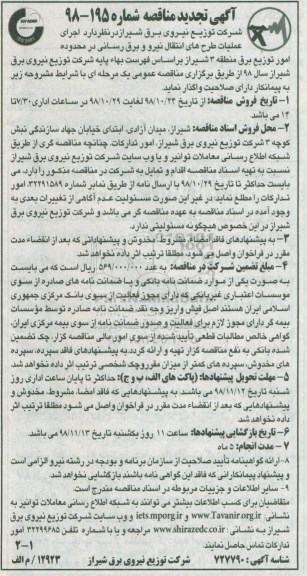 آگهی تجدید مناقصه شماره ۱۹۵-۹۸
شرکت توزیع نیروی برق شیراز در نظر دارد اجرای
عملیات طرح های انتقال نیرو و برق رسانی در محدوده
امور توزیع برق منطقه ۳ شیراز براساس فهرست بهاء پایه شرکت توزیع نیروی برق
شیراز سال ۹۸ از طریق برگزاری مناقصه عمومی یک مرحله ای با شرایط مشروحه زیر
به پیمانکار دارای صلاحیت واگذار نماید.
۱- تاریخ فروش مناقصه: از تاریخ ۹۸/۱۰/۲۳ لغایت ۹۸/۱۰/۲۹ در ساعات اداری ۷/۳۰ تا
۱۴ می باشد
۲- محل فروش اسناد مناقصه: شیراز، میدان آزادی، ابتدای خیابان جهاد سازندگی نبش
کوچه ۳ شرکت توزیع نیروی برق شیراز، امور تدارکات. چنانچه مناقصه گری از طریق
شبکه اطلاع رسانی معاملات توانیر و یا وب سایت شرکت توزیع نیروی برق شیراز
نسبت به تهیه اسناد مناقصه اقدام و تمایل به شرکت در مناقصه مذکور را دارد، می
بایست حداکثر تا تاریخ ۹۸/۱۰/۲۹ با ارسال نامه از طریق نمابر شماره ۳۲۲۹۱۵۸۹ امور
تدارکات را مطلع نماید در غیر این صورت مسئولیت عدم آگاهی از تغییرات بعدی به
وجود آمده در اسناد مناقصه به عهده مناقصه گر می باشد و شرکت توزیع نیروی برق
شیراز در این خصوص هیچگونه مسئولیتی ندارد.
۳- به پیشنهادهای فاقد امضاء، مشروط، مخدوش و پیشنهاداتی که بعد از انقضاء مدت
مقرر در فراخوان واصل می شود، مطلقا ترتیب اثر داده نخواهد شد.
۴- مبلغ تضمین شرکت در مناقصه: به عدد ۵۶۹/۰۰۰/۰۰۰ ریال است که می بایست
به صورت یکی از موارد ضمانت نامه بانکی و یا ضمانت نامه های صادره از سوی
موسسات اعتباری غیربانکی که دارای مجوز فعالیت از سوی بانک مرکزی جمهوری
اسلامی ایران هستند، اصل فیش واریز وجه نقد، ضمانت نامه صادره توسط مؤسسات
بیمه گر دارای مجوز لازم برای فعالیت و صدور ضمانت نامه از سوی بیمه مرکزی ایران،
گواهی خالص مطالبات قطعی تأیید شده از سوی امور مالی مناقصه گزار، چک تضمین
شده بانکی به نفع مناقصه گزار تهیه و ارائه گردد. به پیشنهادهای فاقد سپرده، سپرده
های مخدوش، سپرده های کمتر از میزان مقرر و چک شخصی ترتیب اثر داده نخواهد شد.
۵- مهلت تحویل پیشنهادها: (پاکت های الف، ب و ج): حداکثر تا پایان ساعت اداری روز
شنبه تاریخ ۹۸/۱۱/۱۲ می باشد. به پیشنهادهایی که فاقد امضا، مشروط، مخدوش و
پیشنهادهایی که بعد از انقضاء مدت مقرر در فراخوان واصل می شود مطلقا ترتیب اثر
داده نخواهد شد
۶- تاریخ بازگشایی پیشنهادها: ساعت ۱۱ روز یکشنبه تاریخ ۹۸/۱۱/۱۳ می باشد.
۷- مدت انجام: ۵ ماه
۸- ارائه گواهینامه تأیید صلاحیت از سازمان برنامه و بودجه در رشته نیرو الزامی است
و پیشنهاد پیمانکارانی که فاقد این گواهی نامه باشند بازگشایی نخواهد شد.
۹- سایر اطلاعات و جزییات مربوطه در اسناد مناقصه مندرج است
متقاضیان برای کسب اطلاعات بیشتر می توانند به شبکه اطلاع رسانی معاملات توانیر به
نشانی: www.Tavanir.org.ir و iets.mporg.ir و وب سایت شرکت توزیع نیروی برق
شیراز به نشانی: www.shirazedc.co.ir مراجعه و یا با شماره تلفن ۳۲۲۹۹۶۸۵ امور
تدارکات تماس حاصل نمایند. ۲-۱
شناسه آگهی: ۷۲۷۷۹۰ شرکت توزیع نیروی برق شیراز ۱۲۹۲۳ / م الف